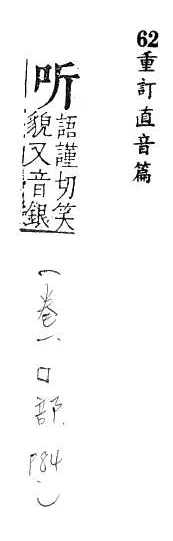 62重訂直音篇
听
語謹切笑
貌又音銀
(卷一口部.P84.)